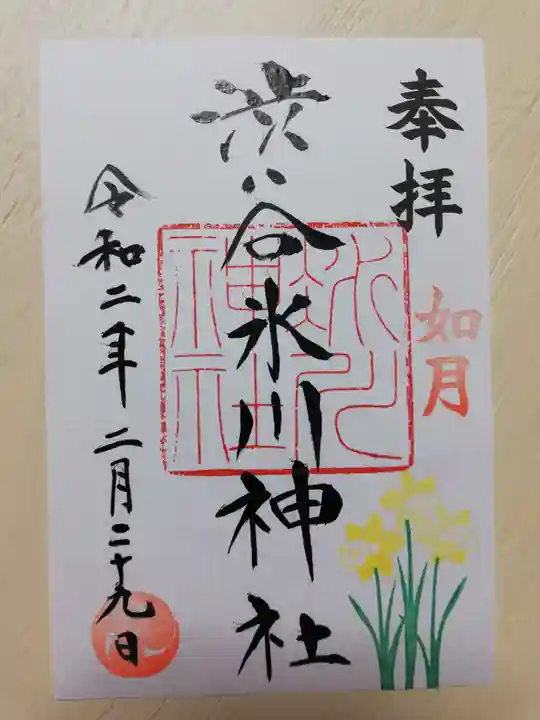 奉拝
如月
渋谷氷川神社
氷川
神社
令和二年二月二十九日